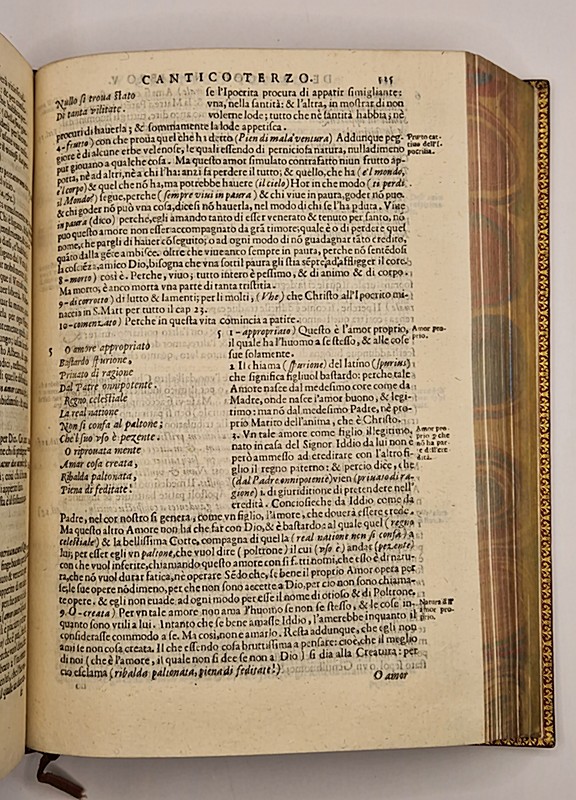 CANTICO TERZO. 335
Nullo si troua stato
Di tanta vilitate.
se l'Ipocrita procura di apparir simigliante:
vna, nella santità: & l'altra, in mostrar di non
volerne lode; tutto che nè santità habbia; nè
procuri di hauerla; & sommamente la lode appetisca.
4-frutto) con che proua quel che hà detto (Pien di mala ventura) Addunque peg-
giore è di alcune erbe velenose, le quali essendo di perniciosa natura, nulladimeno
pur giouano a qualche cosa. Ma questo amor simulato contrafatto niun frutto ap-
porta, nè ad altri, nè a chi l'ha: anzi fa perdere il tutto; & quello, che ha (el mondo,
e'l corpo) & quel che nõ ha, ma potrebbe hauere (il cielo) Hor in che modo (ti perdi
il Mondo) segue, perche (sempre viui in paura) & chi viue in paura, goder nõ può,
& chi goder nõ può vna cosa, dicesi nõ hauerla, nel modo di chi l'ha pduta. Viue
in paura (dico) perche, egli amando tanto di esser venerato & tenuto per santo, nõ
può questo amore non esser accompagnato da grã timore; quale è di perdere quel
nome, che pargli di hauer cõseguito; o ad ogni modo di nõ guadagnar tãto credito,
quãto dalla gẽte ambisce. oltre che viue anco sempre in paura, perche nõ sentẽdosi
la cosciẽza, amico Dio, bisogna che vna sottil paura gli stia sẽpre ad affligger il core.
8-morto) così è. Perche, viuo; tutto intero è pessimo, & di animo & di corpo.
Ma morto, è anco morta vna parte di tanta tristitia.
9-di corrotto) di lutto & lamenti; per li molti, (Vhe) che Christo all'Ipocrito mi-
naccia in S. Matt per tutto il cap 23.
10-comenzato) Perche in questa vita comincia a patire.
Frutto cat-
tiuo dell'I-
pocrisia.
5 O amore appropriato
Bastardo spurione,
Priuato di ragione
Dal Patre onnipotente.
Regno celestiale
La real natione
Non si confa al paltone;
Che'l suo vso è pezente.
O riprouata mente
Amar cosa creata,
Ribalda paltonata,
Piena di feditate!
5 1-appropriato) Questo è l'amor proprio,
il quale ha l'huomo a se stesso, & alle cose
sue solamente.
2 Il chiama (spurione) del latino (spurius)
che significa figliuol bastardo: perche tal'
Amore nasce dal medesimo core come da
Madre, onde nasce l'amor buono, & legi-
timo: ma nõ dal medesimo Padre, nè pro-
prio Marito dell'anima, che è Christo.
3. Vn tale amore come figlio illegitimo,
nato in casa del Signor Iddio da lui non è
però ammesso ad ereditare con l'altro fi-
glio il regno paterno: & perciò dice, che
(dal Padre onnipotente) vien (priuato di ra-
gione) i. di giuriditione di pretendere nell'
eredità. Conciosieche da Iddio come da
Amor pro-
prio.
Amor pro-
prio 9 che
nõ ha par-
te dell'ere-
dità.
Padre, nel cor nostro si genera, come vn figlio, l'amore, che douerà essere erede.
Ma questo altro Amore non ha che far con Dio, & è bastardo: al quale quel (regno
celestiale) & la bellissima Corte, compagna di quella (real natione non si confa) a
lui; per esser egli vn paltone, che vuol dire (poltrone) il cui (vso è) andar (pezente)
con che vuol inferire, chiamando questo amore con si fatti nomi, che esso è di natu-
ra, che nõ vuol durar fatica, nè operare Sẽdo che, se bene il proprio Amor opera per
se, le sue opere nõdimeno, per che non sono accette a Dio, per ciò non sono chiama-
te opere, & egli non euade ad ogni modo per esse il nome di otioso & di Poltrone.
9 O-creata) Per vn tale amore non ama l'huomo se non se stesso, & le cose in-
quanto sono vtili a lui. Intanto che se bene amasse Iddio, l'amerebbe inquanto il
considerasse commodo a se. Ma così, non è amarlo. Resta addunque, che egli non
ami se non cosa creata. Il che essendo cosa bruttissima a pensare: cioè, che il meglio
di noi (che è l'amore, il quale non si dee se non a Dio) si dia alla Creatura: per
ciò esclama (ribalda paltonata, piena di feditate!)
Natura dell'
amor pro-
prio.
O amor